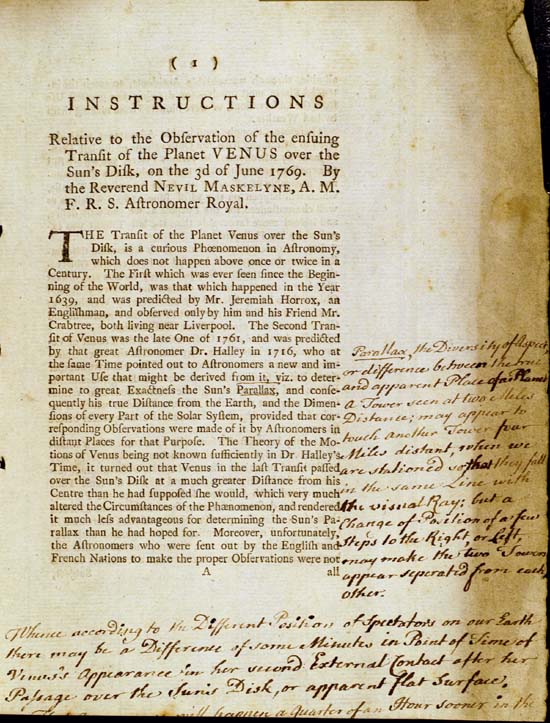 ( 1 )
INSTRUCTIONS
Relative to the Obſervation of the enſuing
Tranſit of the Planet VENUS over the
Sun's Diſk, on the 3d of June 1769. By
the Reverend NEVIL MASKELYNE, A. M.
F. R. S. Aſtronomer Royal.
THE Tranſit of the Planet Venus over the Sun's
Diſk, is a curious Phœnomenon in Aſtronomy,
which does not happen above once or twice in a
Century. The Firſt which was ever ſeen ſince the Begin-
ning of the World, was that which happened in the Year
1639, and was predicted by Mr. Jeremiah Horrox, an
Engliſhman, and obſerved only by him and his Friend Mr.
Crabtree, both living near Liverpool. The Second Tran-
ſit of Venus was the late One of 1761, and was predicted
by that great Aſtronomer Dr. Halley in 1716, who at
the ſame Time pointed out to Aſtronomers a new and im-
portant Uſe that might be derived from it, viz. to deter-
mine to great Exactneſs the Sun's Parallax, and conſe-
quently his true Diſtance from the Earth, and the Dimen-
ſions of every Part of the Solar Syſtem, provided that cor-
reſponding Obſervations were made of it by Aſtronomers in
diſtant Places for that Purpoſe. The Theory of the Mo-
tions of Venus being not known ſufficiently in Dr. Halley's
Time, it turned out that Venus in the laſt Tranſit paſſed
over the Sun's Diſk at a much greater Diſtance from his
Centre than he had ſuppoſed ſhe would, which very much
altered the Circumſtances of the Phænomenon, and rendered
it much leſs advantageous for determining the Sun's Pa-
rallax than he had hoped for. Moreover, unfortunately,
the Aſtronomers who were ſent out by the Engliſh and
French Nations to make the proper Obſervations were not
A all
Parallax, the Diversity of Aspect
or difference between the true
and apparent Place of a Planet
a Tower seen at two Miles
Distance; may appear to
touch another Tower four
Miles distant, when we
are stationed so that they fall
in the same Line with
the visual Ray; but a
Change of Position of a few
Steps to the Right, or Left,
may make the two Towers
appear seperated from each
other.
Whence according to the Different Position of Spectators on our Earth
there may be a Difference of some Minutes in Point of Time of
Venus's Appearance in her second External Contact after her
Paſsage over the Sun's Disk, or apparent flat Surface.
will happen a Quarter of an Hour sooner in the